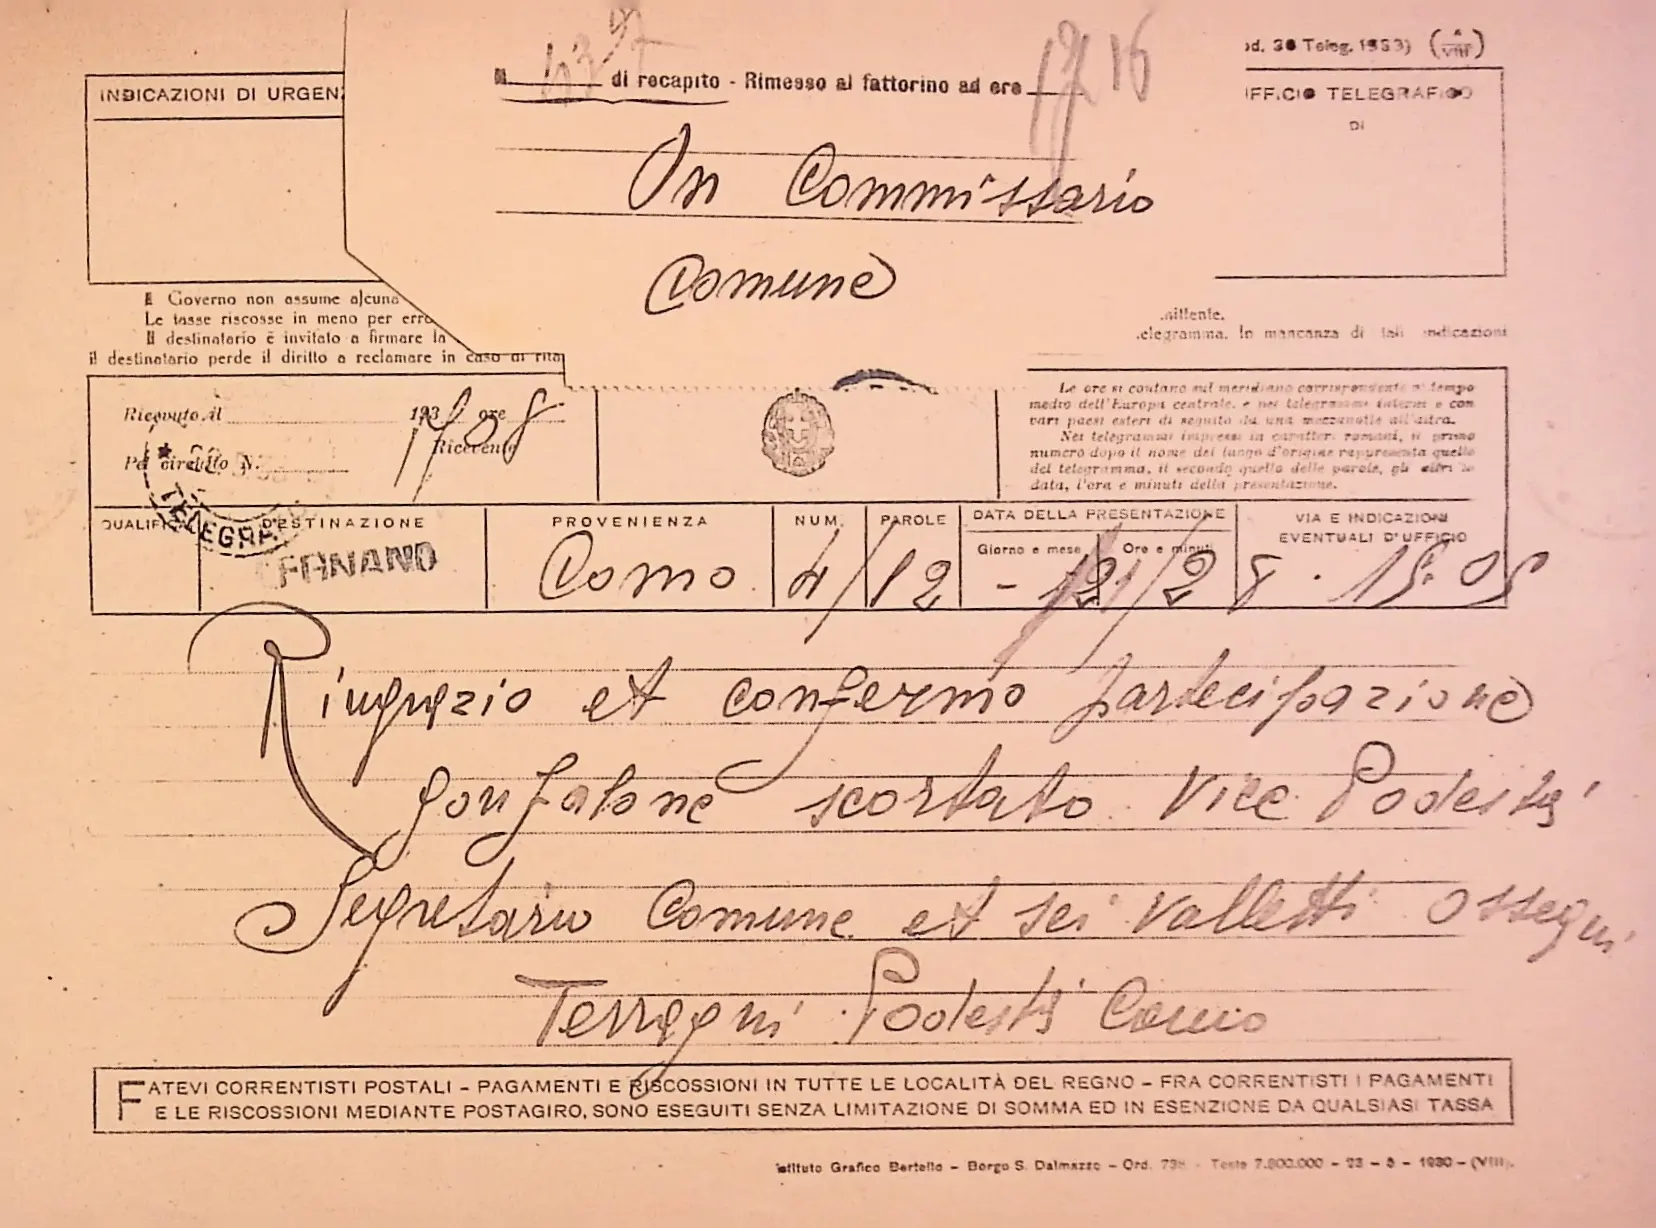 INDICAZIONI DI URGEN
di recapito - Rimesso al fattorino ad ore 17 16
On Commissario
Comune
Mod. 30 Teleg. 1933) (A VIII)
UFFICIO TELEGRAFICO
DI
Il Governo non assume alcuna
Le tasse riscosse in meno per erro
Il destinatario è invitato a firmare la
il destinatario perde il diritto a reclamare in caso di rita
mittente.
telegramma. In mancanza di tali indicazioni
Ricevuto il 193 ore
Pel circuito N. Ricevente
TELEGRA
Le ore si contano sul meridiano corrispondente al tempo
medio dell'Europa centrale, e nei telegrammi interni e con
vari paesi esteri di seguito da una mezzanotte all'altra.
Nei telegrammi impressi in caratteri romani, il primo
numero dopo il nome del luogo d'origine rappresenta quello
del telegramma, il secondo quello delle parole, gli altri la
data, l'ora e minuti della presentazione.
QUALIFICA DESTINAZIONE PROVENIENZA NUM. PAROLE DATA DELLA PRESENTAZIONE VIA E INDICAZIONI
Giorno e mese Ore e minuti EVENTUALI D'UFFICIO
FANANO Como 4/12
Ringrazio et confermo partecipazione
gonfalone scortato Vice Podestà
Segretario Comune et sei Valletti ossequi
Terragni Podestà Como
FATEVI CORRENTISTI POSTALI - PAGAMENTI E RISCOSSIONI IN TUTTE LE LOCALITÀ DEL REGNO - FRA CORRENTISTI I PAGAMENTI
E LE RISCOSSIONI MEDIANTE POSTAGIRO, SONO ESEGUITI SENZA LIMITAZIONE DI SOMMA ED IN ESENZIONE DA QUALSIASI TASSA
Istituto Grafico Bertello - Borgo S. Dalmazzo - Ord. 738 - Teste 7.800.000 - 23 - 5 - 1930 - (VIII).